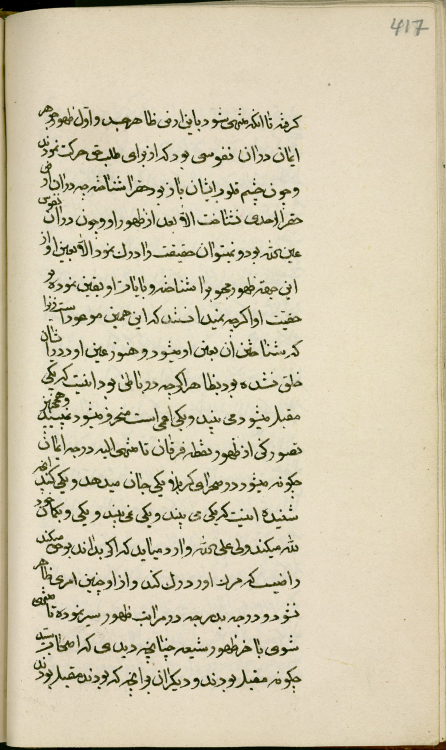 417
گرفته تا آنکه منتهی شود بافق ارض ظاهر شد و اول ظهور جوهر
ایمان در آن نفوسی بود که از برای طلب حق حرکت نمودند
و چون چشم قلوب ایشان باز بود حق را شناختند چه در آن ارض
حق را احدی نشناخت الا بعد از ظهور او و چون در آن نفوس
عین الله بود و نمیتوان حقیقت را درک نمود الا بعین او از
این جهة ظهور محبوب را شناخته و بایات او یقین نموده بر
حقیت او اگرچه نمیدانستند که این همین موعود است زیرا
که شناختن آن بعین او میشود و هنوز عین او در ایشان
خلق نشده بود بظاهر اگرچه در باطن بود اینست که یکی
مقبل میشود می بیند و یکی اعمی است منحرف میشود نمی بیند و همچنین
تصور کن از ظهور نقطه فرقان تا منتهی الیه درجه ایمان
چگونه میشود در صحرای کربلا یکی جان میدهد و یکی آنچه
شنیده اینست که یکی می بیند و یکی نمی بیند و یکی و یکی
لله میکند ولی علی الله وارد میاید که اگر بداند بوحی میکند
را نیست که مرات او درک کند و از او چنین امری ظاهر
شود و درجه بدرجه در مراتب ظهور سیر نموده تا منتهی
شوی باخر ظهور شیعه چنانچه دیدی که اصحاب سید
چگونه مقبل بودند و دیگران بر آنچه که بودند مقبل بودند